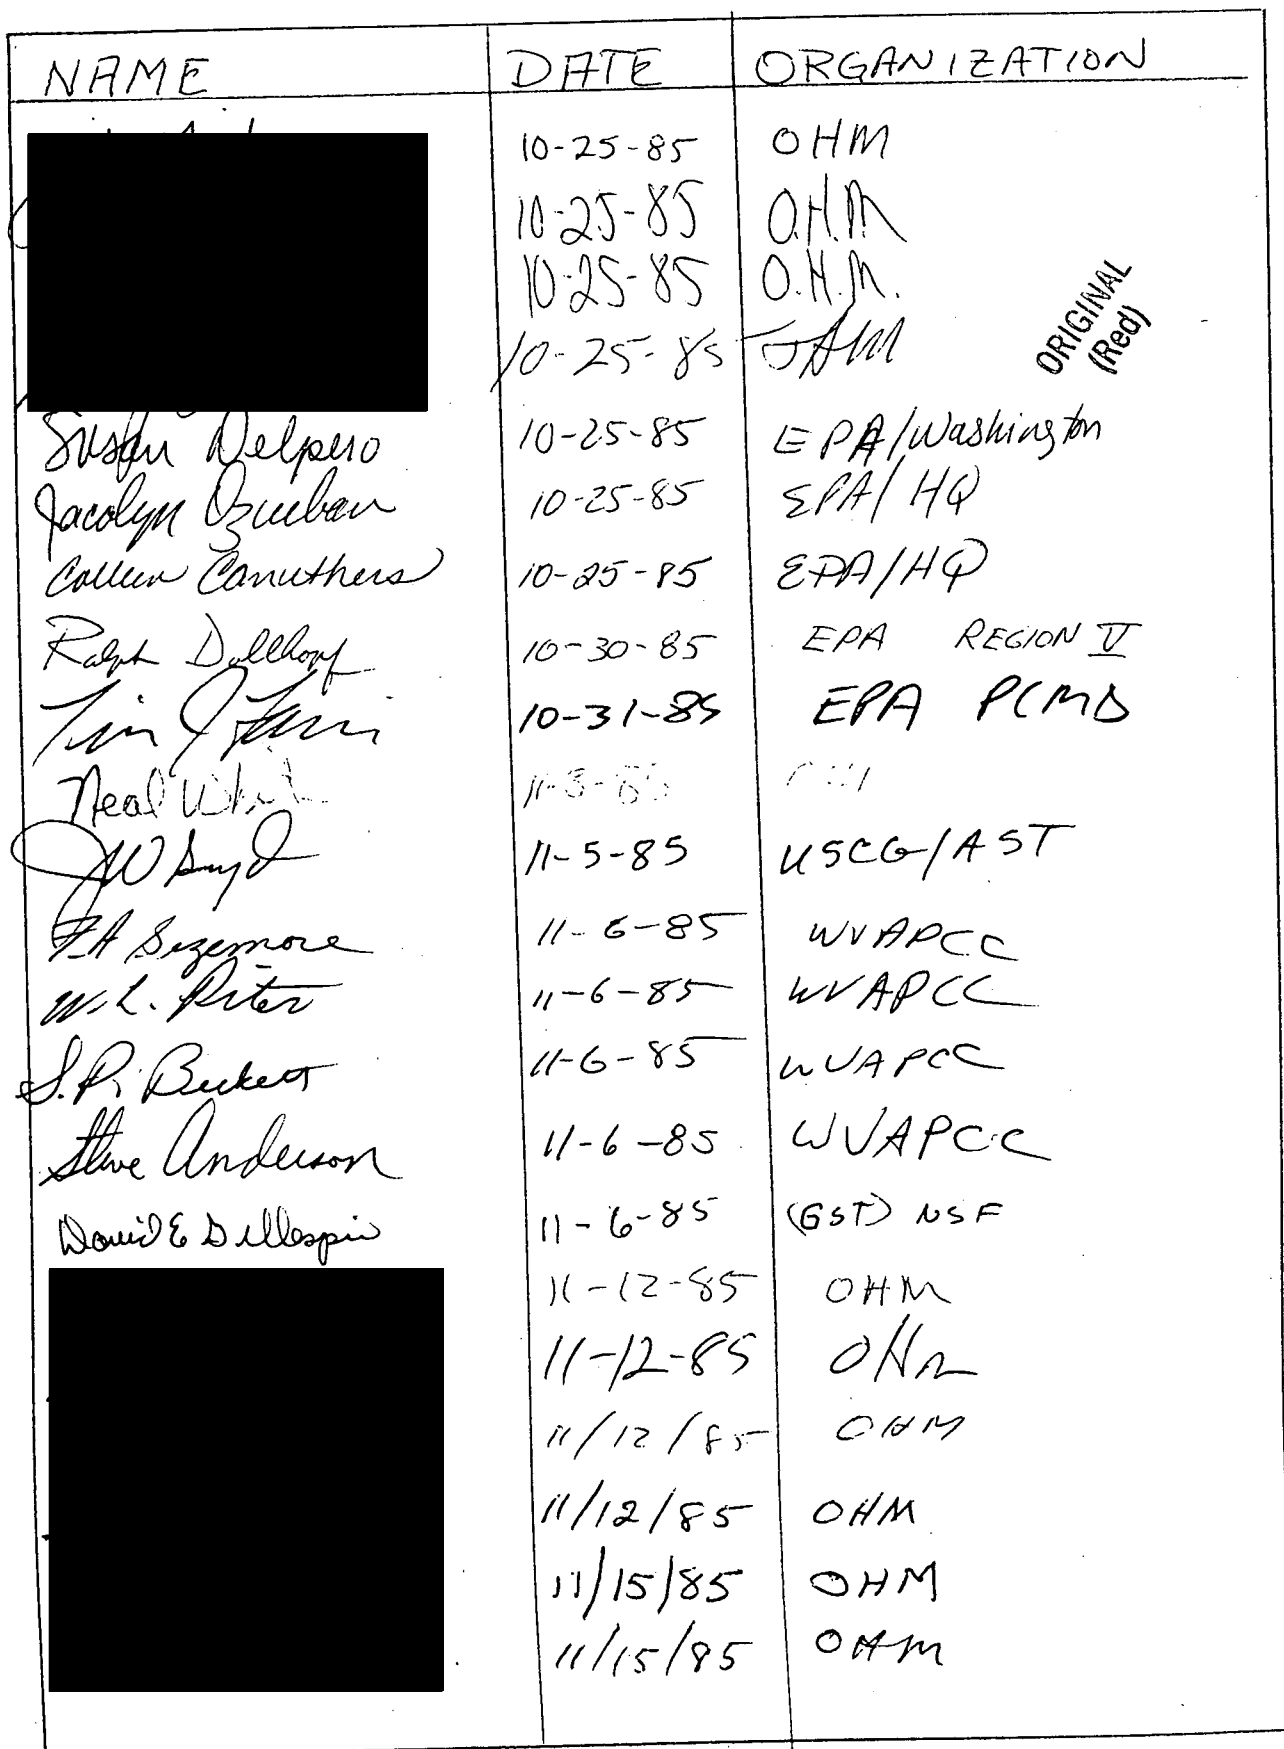 NAME DATE ORGANIZATION
10-25-85 OHM
10-25-85 O.H.M
10-25-85 O.H.M.
10-25-85 OHM
ORIGINAL
(Red)
Susan Delpero 10-25-85 EPA/Washington
Jacolyn 10-25-85 EPA/HQ
Colleen Carruthers 10-25-85 EPA/HQ
Ralph Dollhopf 10-30-85 EPA REGION V
Tim J 10-31-85 EPA PCMD
Neal
JW Boyd 11-5-85 USCG/AST
FA Sizemore 11-6-85 WVAPCC
W.L. 11-6-85 WVAPCC
S.P. Beckett 11-6-85 WVAPCC
Steve Anderson 11-6-85 WVAPCC
David E Gillespie 11-6-85 (GST) NSF
11-12-85 OHM
11-12-85 OHM
11/12/85 OHM
11/12/85 OHM
11/15/85 OHM
11/15/85 OHM